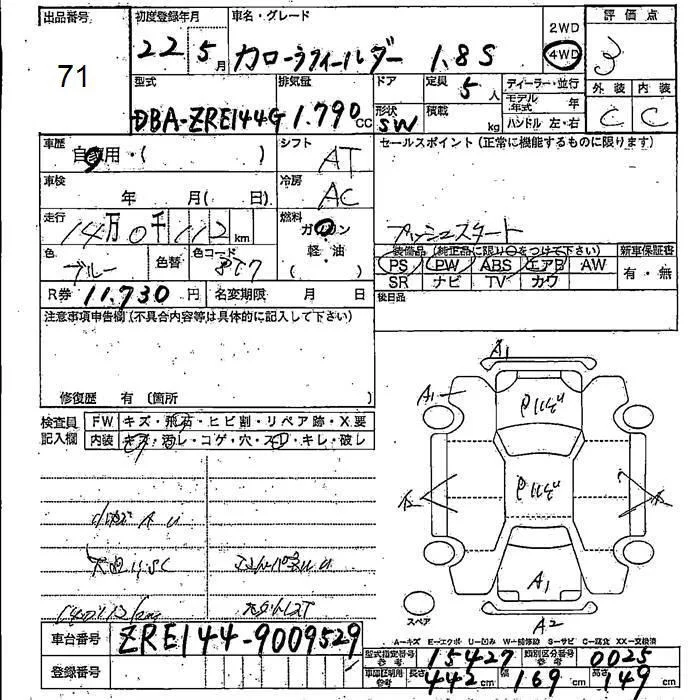 出品番号 初度登録年月 車名・グレード 2WD 評価点
71 22 5月 カローラフィールダー 1.8S 4WD 3
型式 排気量 ドア 定員 ディーラー・並行 外装 内装
5人 モデル年式 年
DBA-ZRE144G 1.790cc 形状 SW 積載 kg ハンドル 左・右 C C
車歴 シフト セールスポイント(正常に機能するものに限ります)
自家用・( ) AT
車検 冷房
年 月( 日) AC
走行 燃料 プッシュスタート
14万0千112km ガソリン
色 色替 色コード 軽油 装備品(純正品に限り○をつけて下さい) 新車保証書
ブルー 8T7 ( ) PS PW ABS エアB AW 有・無
SR ナビ TV カワ
R券 11,730円 名変期限 月 日 後日品
注意事項申告欄(不具合内容等は具体的に記入して下さい)
A1
A1
修復歴 有 〔箇所 〕
検査員記入欄 FW キズ・飛石・ヒビ割・リペア跡・X要
内装 キズ・汚レ・コゲ・穴・スレ・キレ・破レ
A1
スペア A2
A-キズ E-エクボ U-凹み W-補修跡 S-サビ C-腐食 XX-交換済
車台番号 ZRE144-9009529
型式指定番号 参考 15427 類別区分番号 参考 0025
登録番号 車庫証明用 参考 長さ 442cm 幅 169cm 高さ 149cm